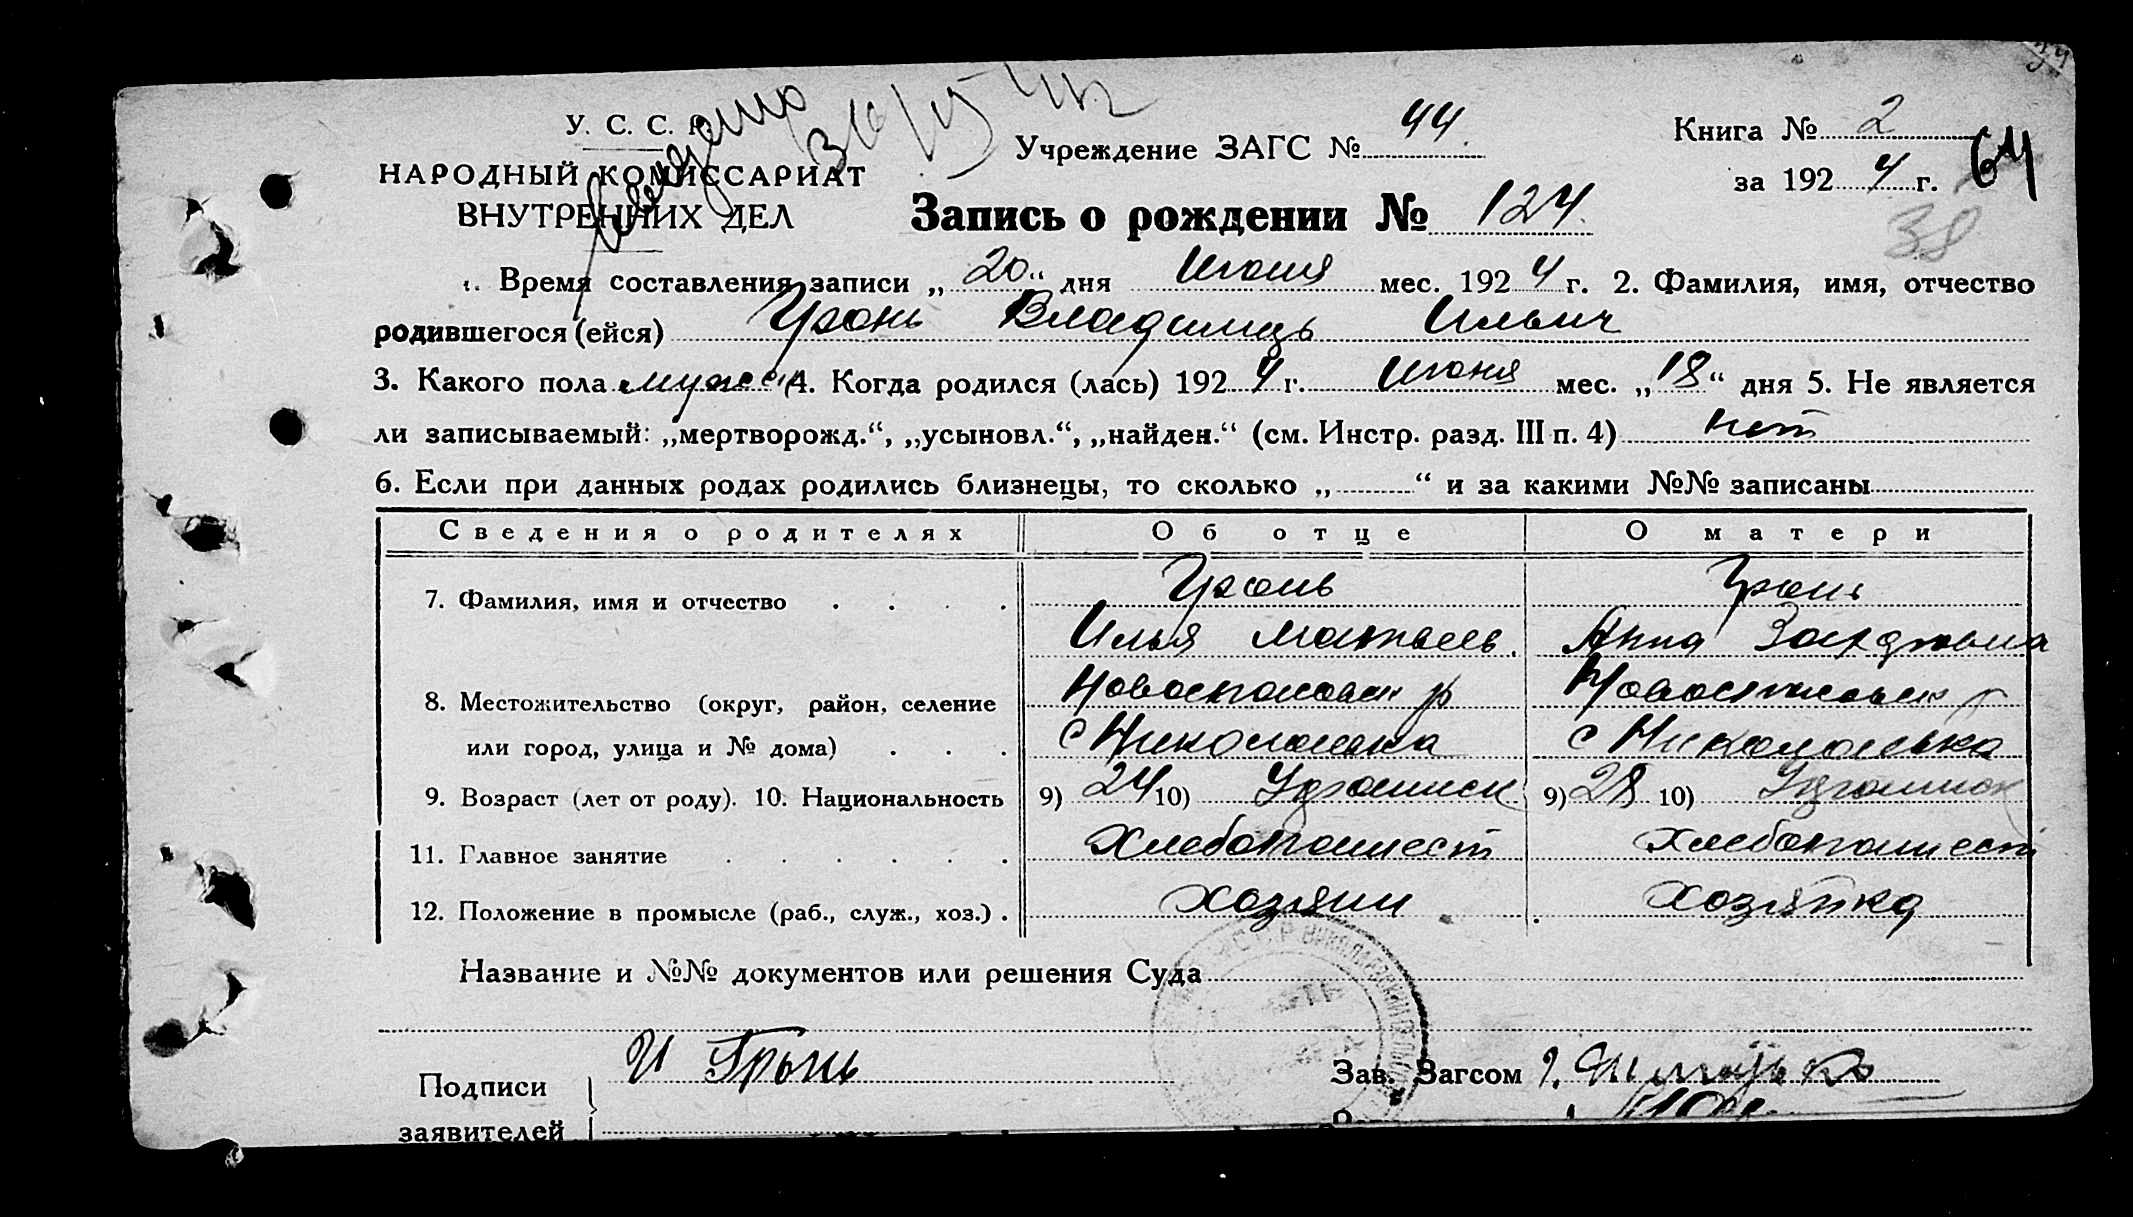 У. С. С. Р.
НАРОДНЫЙ КОМИССАРИАТ
ВНУТРЕННИХ ДЕЛ
Учреждение ЗАГС № 44.
Книга № 2
за 1924 г.
64
38
Запись о рождении № 124.
1. Время составления записи „20“ дня Июня мес. 1924 г. 2. Фамилия, имя, отчество
родившегося (ейся) Грань Владимир Ильич
3. Какого пола мужск 4. Когда родился (лась) 1924 г. Июня мес. „18“ дня 5. Не является
ли записываемый: „мертворожд.“, „усыновл.“, „найден.“ (см. Инстр. разд. III п. 4) нет
6. Если при данных родах родились близнецы, то сколько „ “ и за какими №№ записаны
Сведения о родителях Об отце О матери
7. Фамилия, имя и отчество Грань Грань
Илья Матвеев. Анна
8. Местожительство (округ, район, селение Р
или город, улица и № дома) с Николаевка с Николаевка
9. Возраст (лет от роду). 10. Национальность 9) 24 10) Украинск 9) 28 10) Украинск
11. Главное занятие Хлебопашест Хлебопашест
12. Положение в промысле (раб., служ., хоз.) хозяин хозяйка
Название и №№ документов или решения Суда
Подписи И Грынь Зав. Загсом
заявителей